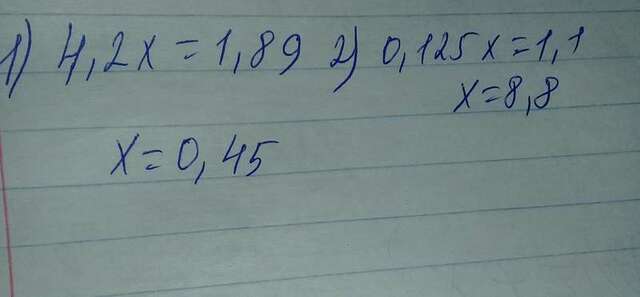 1) 4,2x = 1,89 2) 0,125x = 1,1
x = 8,8
x = 0,45